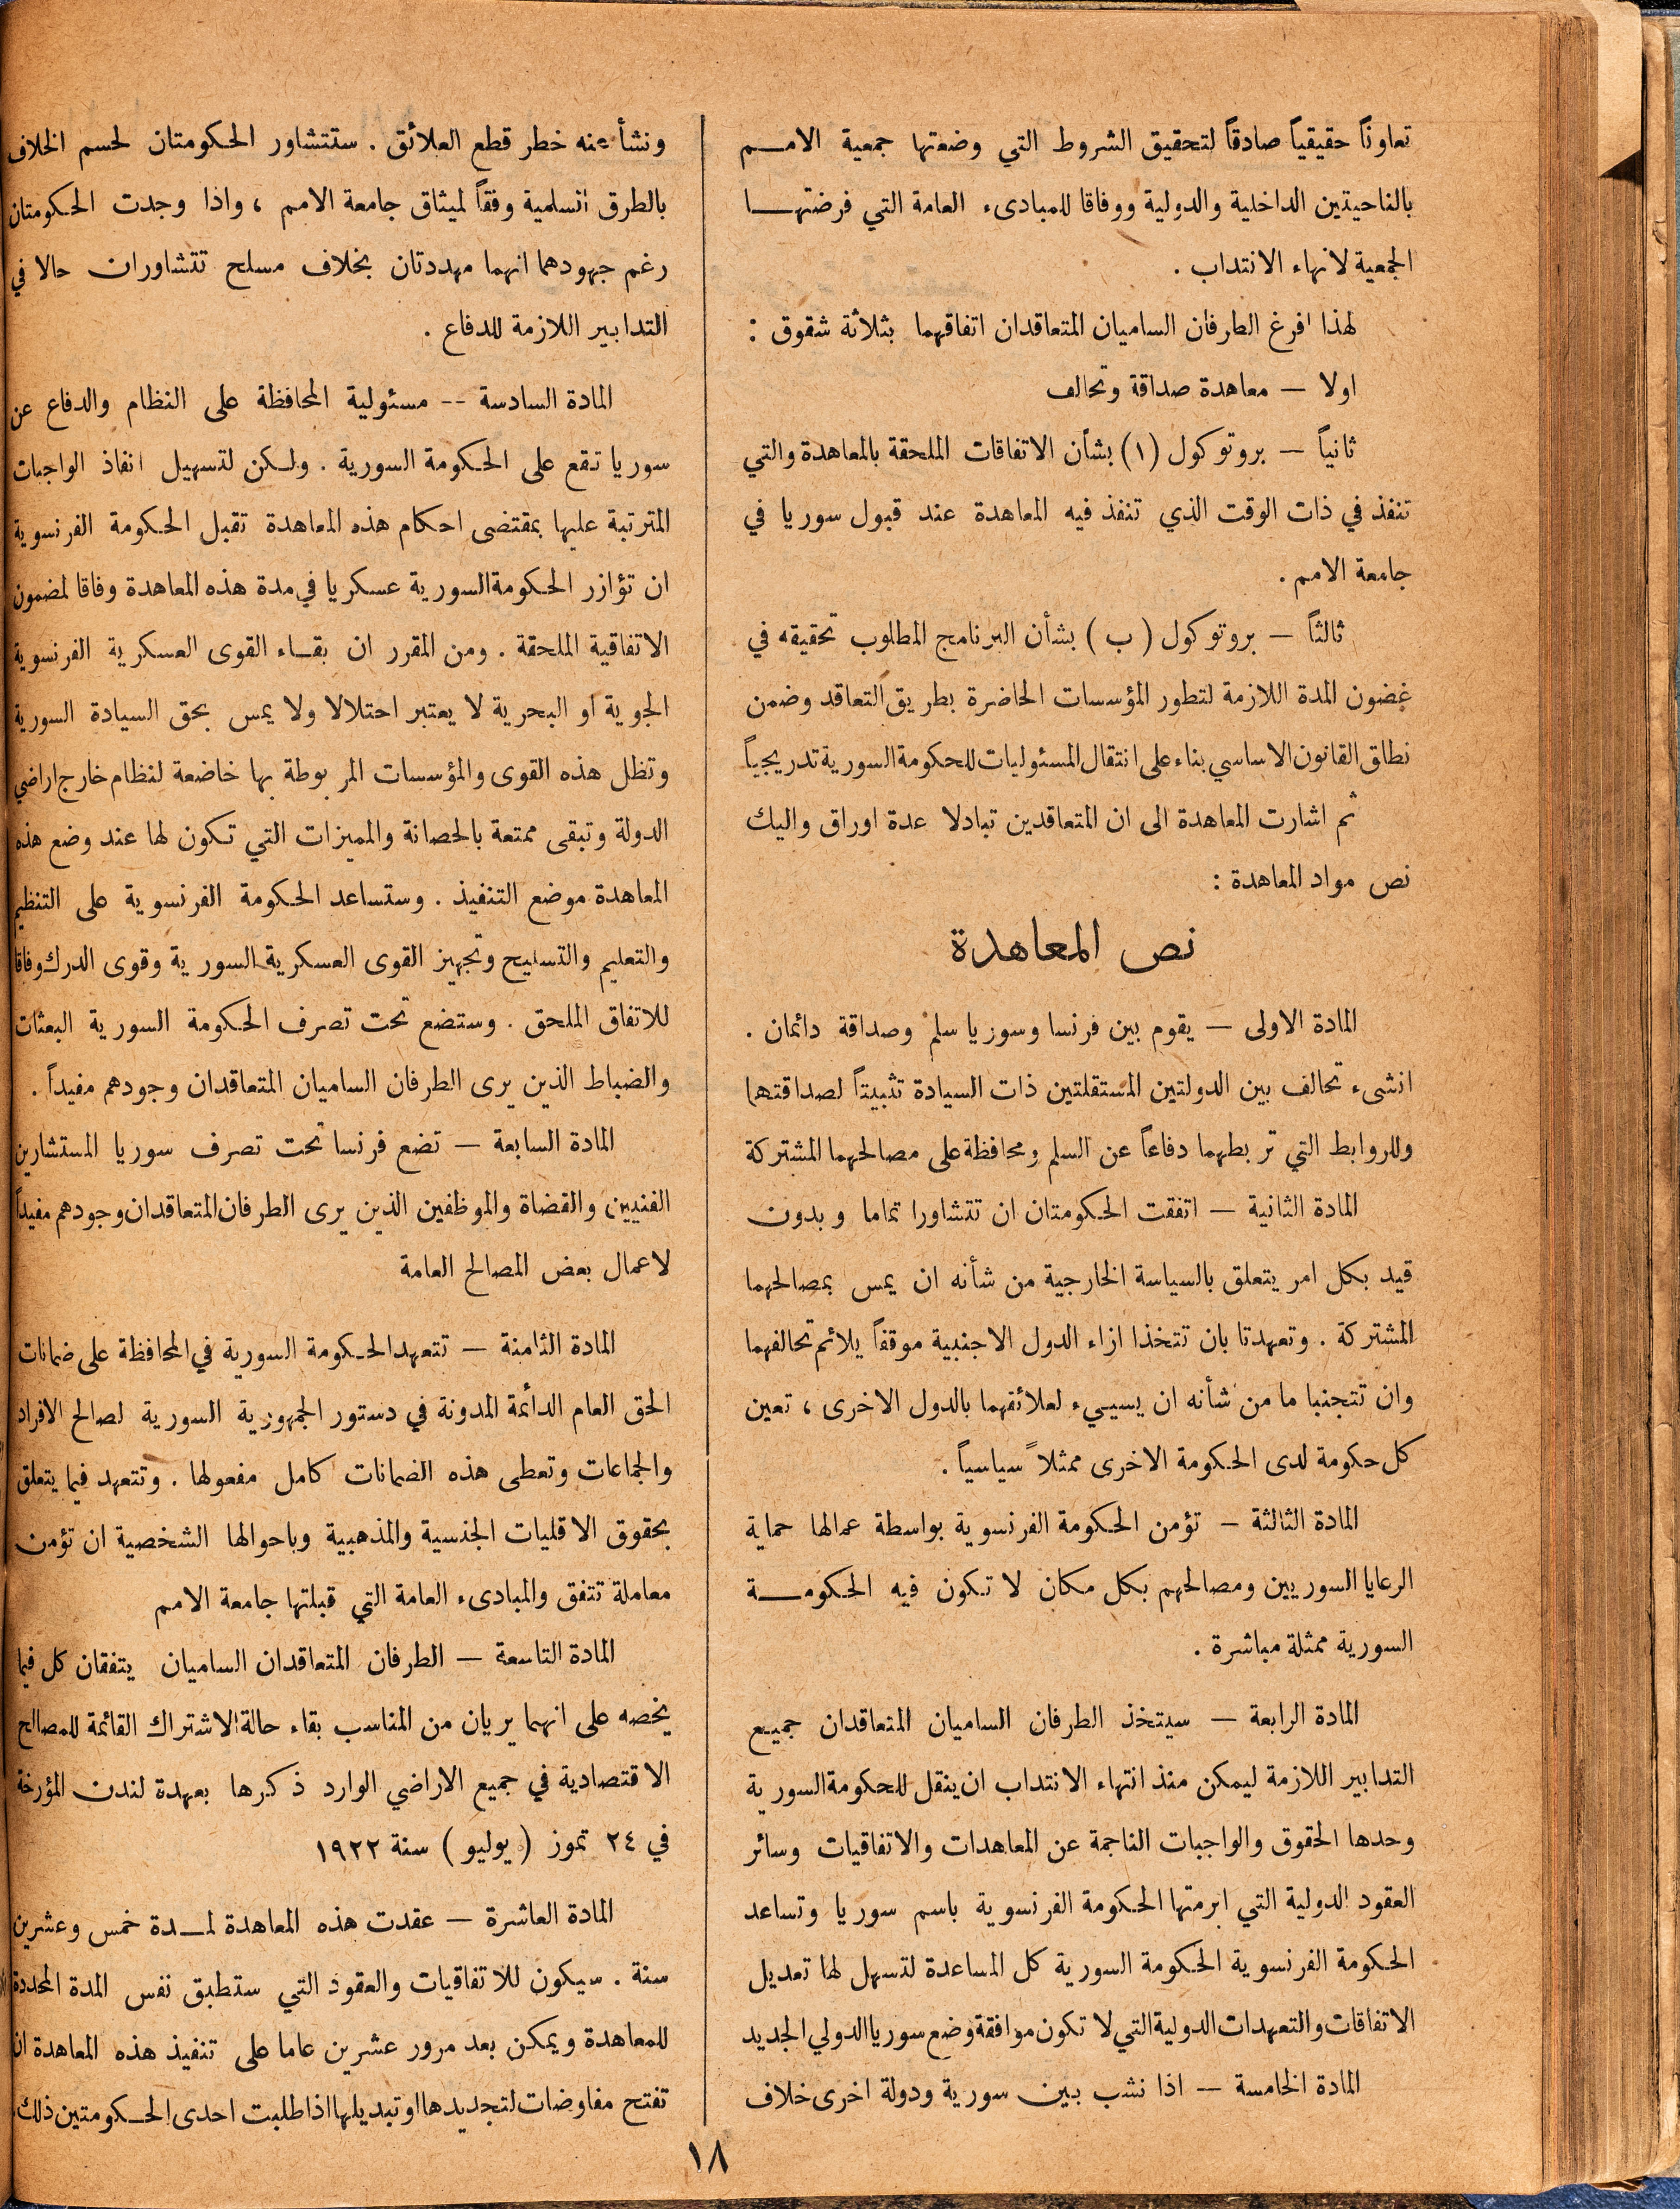 تعاوناً حقيقياً صادقاً لتحقيق الشروط التي وضعتها جمعية الامـــم
بالناحيتين الداخلية والدولية ووفاقا للمبادىء العامة التي فرضتهـــا
الجمعية لانهاء الانتداب .
لهذا افرغ الطرفان الساميان المتعاقدان اتفاقهما بثلاثة شقوق :
اولا — معاهدة صداقة وتحالف
ثانياً — بروتوكول (١) بشأن الاتفاقات الملحقة بالمعاهدة والتي
تنفذ في ذات الوقت الذي تنفذ فيه المعاهدة عند قبول سوريا في
جامعة الامم .
ثالثاً — بروتوكول ( ب ) بشأن البرنامج المطلوب تحقيقه في
غضون المدة اللازمة لتطور المؤسسات الحاضرة بطريق التعاقد وضمن
نطاق القانون الاساسي بناء على انتقال المسئوليات للحكومة السورية تدريجياً
ثم اشارت المعاهدة الى ان المتعاقدين تبادلا عدة اوراق واليك
نص مواد المعاهدة :
نص المعاهدة
المادة الاولى — يقوم بين فرنسا وسوريا سلم وصداقة دائمان .
انشىء تحالف بين الدولتين المستقلتين ذات السيادة تثبيتاً لصداقتهما
وللروابط التي تربطهما دفاعاً عن السلم ومحافظة على مصالحهما المشتركة
المادة الثانية — اتفقت الحكومتان ان تتشاورا تماما وبدون
قيد بكل امر يتعلق بالسياسة الخارجية من شأنه ان يمس بمصالحهما
المشتركة . وتعهدتا بان تتخذا ازاء الدول الاجنبية موقفاً يلائم تحالفهما
وان تتجنبا ما من شأنه ان يسيىء لعلائقهما بالدول الاخرى ، تعين
كل حكومة لدى الحكومة الاخرى ممثلاً سياسياً .
المادة الثالثة — تؤمن الحكومة الفرنسوية بواسطة عمالها حماية
الرعايا السوريين ومصالحهم بكل مكان لا تكون فيه الحكومـــة
السورية ممثلة مباشرة .
المادة الرابعة — سيتخذ الطرفان الساميان المتعاقدان جميع
التدابير اللازمة ليمكن منذ انتهاء الانتداب ان ينقل للحكومة السورية
وحدها الحقوق والواجبات الناجمة عن المعاهدات والاتفاقيات وسائر
العقود الدولية التي ابرمتها الحكومة الفرنسوية باسم سوريا وتساعد
الحكومة الفرنسوية الحكومة السورية كل المساعدة لتسهل لها تعديل
الاتفاقات والتعهدات الدولية التي لا تكون موافقة وضع سوريا الدولي الجديد
المادة الخامسة — اذا نشب بين سورية ودولة اخرى خلاف
ونشأ عنه خطر قطع العلائق . ستتشاور الحكومتان لحسم الخلاف
بالطرق السلمية وفقاً لميثاق جامعة الامم ، واذا وجدت الحكومتان
رغم جهودهما انهما مهددتان بخلاف مسلح تتشاوران حالا في
التدابير اللازمة للدفاع .
المادة السادسة -- مسئولية المحافظة على النظام والدفاع عن
سوريا تقع على الحكومة السورية . ولكن لتسهيل انفاذ الواجبات
المترتبة عليها بمقتضى احكام هذه المعاهدة تقبل الحكومة الفرنسوية
ان تؤازر الحكومة السورية عسكريا في مدة هذه المعاهدة وفاقا لمضمون
الاتفاقية الملحقة . ومن المقرر ان بقـاء القوى العسكرية الفرنسوية
الجوية او البحرية لا يعتبر احتلالا ولا يمس بحق السيادة السورية
وتظل هذه القوى والمؤسسات المربوطة بها خاضعة لنظام خارج اراضي
الدولة وتبقى ممتعة بالحصانة والمميزات التي تكون لها عند وضع هذه
المعاهدة موضع التنفيذ . وستساعد الحكومة الفرنسوية على التنظيم
والتعليم والتسليح وتجهيز القوى العسكرية السورية وقوى الدرك وفاقا
للاتفاق الملحق . وستضع تحت تصرف الحكومة السورية البعثات
والضباط الذين يرى الطرفان الساميان المتعاقدان وجودهم مفيداً .
المادة السابعة — تضع فرنسا تحت تصرف سوريا المستشارين
الفنيين والقضاة والموظفين الذين يرى الطرفان المتعاقدان وجودهم مفيداً
لاعمال بعض المصالح العامة
المادة الثامنة — تتعهد الحكومة السورية في المحافظة على ضمانات
الحق العام الدائمة المدونة في دستور الجمهورية السورية لصالح الافراد
والجماعات وتعطى هذه الضمانات كامل مفعولها . وتتعهد فيما يتعلق
بحقوق الاقليات الجنسية والمذهبية وباحوالها الشخصية ان تؤمن
معاملة تتفق والمبادىء العامة التي قبلتها جامعة الامم
المادة التاسعة — الطرفان المتعاقدان الساميان يتفقان كل فيما
يخصه على انهما يريان من المناسب بقاء حالة الاشتراك القائمة للمصالح
الاقتصادية في جميع الاراضي الوارد ذكرها بعهدة لندن المؤرخة
في ٢٤ تموز ( يوليو ) سنة ١٩٢٢
المادة العاشرة — عقدت هذه المعاهدة لمـــدة خمس وعشرين
سنة . سيكون للاتفاقيات والعقود التي ستطبق نفس المدة المحددة
للمعاهدة ويمكن بعد مرور عشرين عاما على تنفيذ هذه المعاهدة ان
تفتح مفاوضات لتجديدها او تبديلها اذا طلبت احدى الحكومتين ذلك
١٨